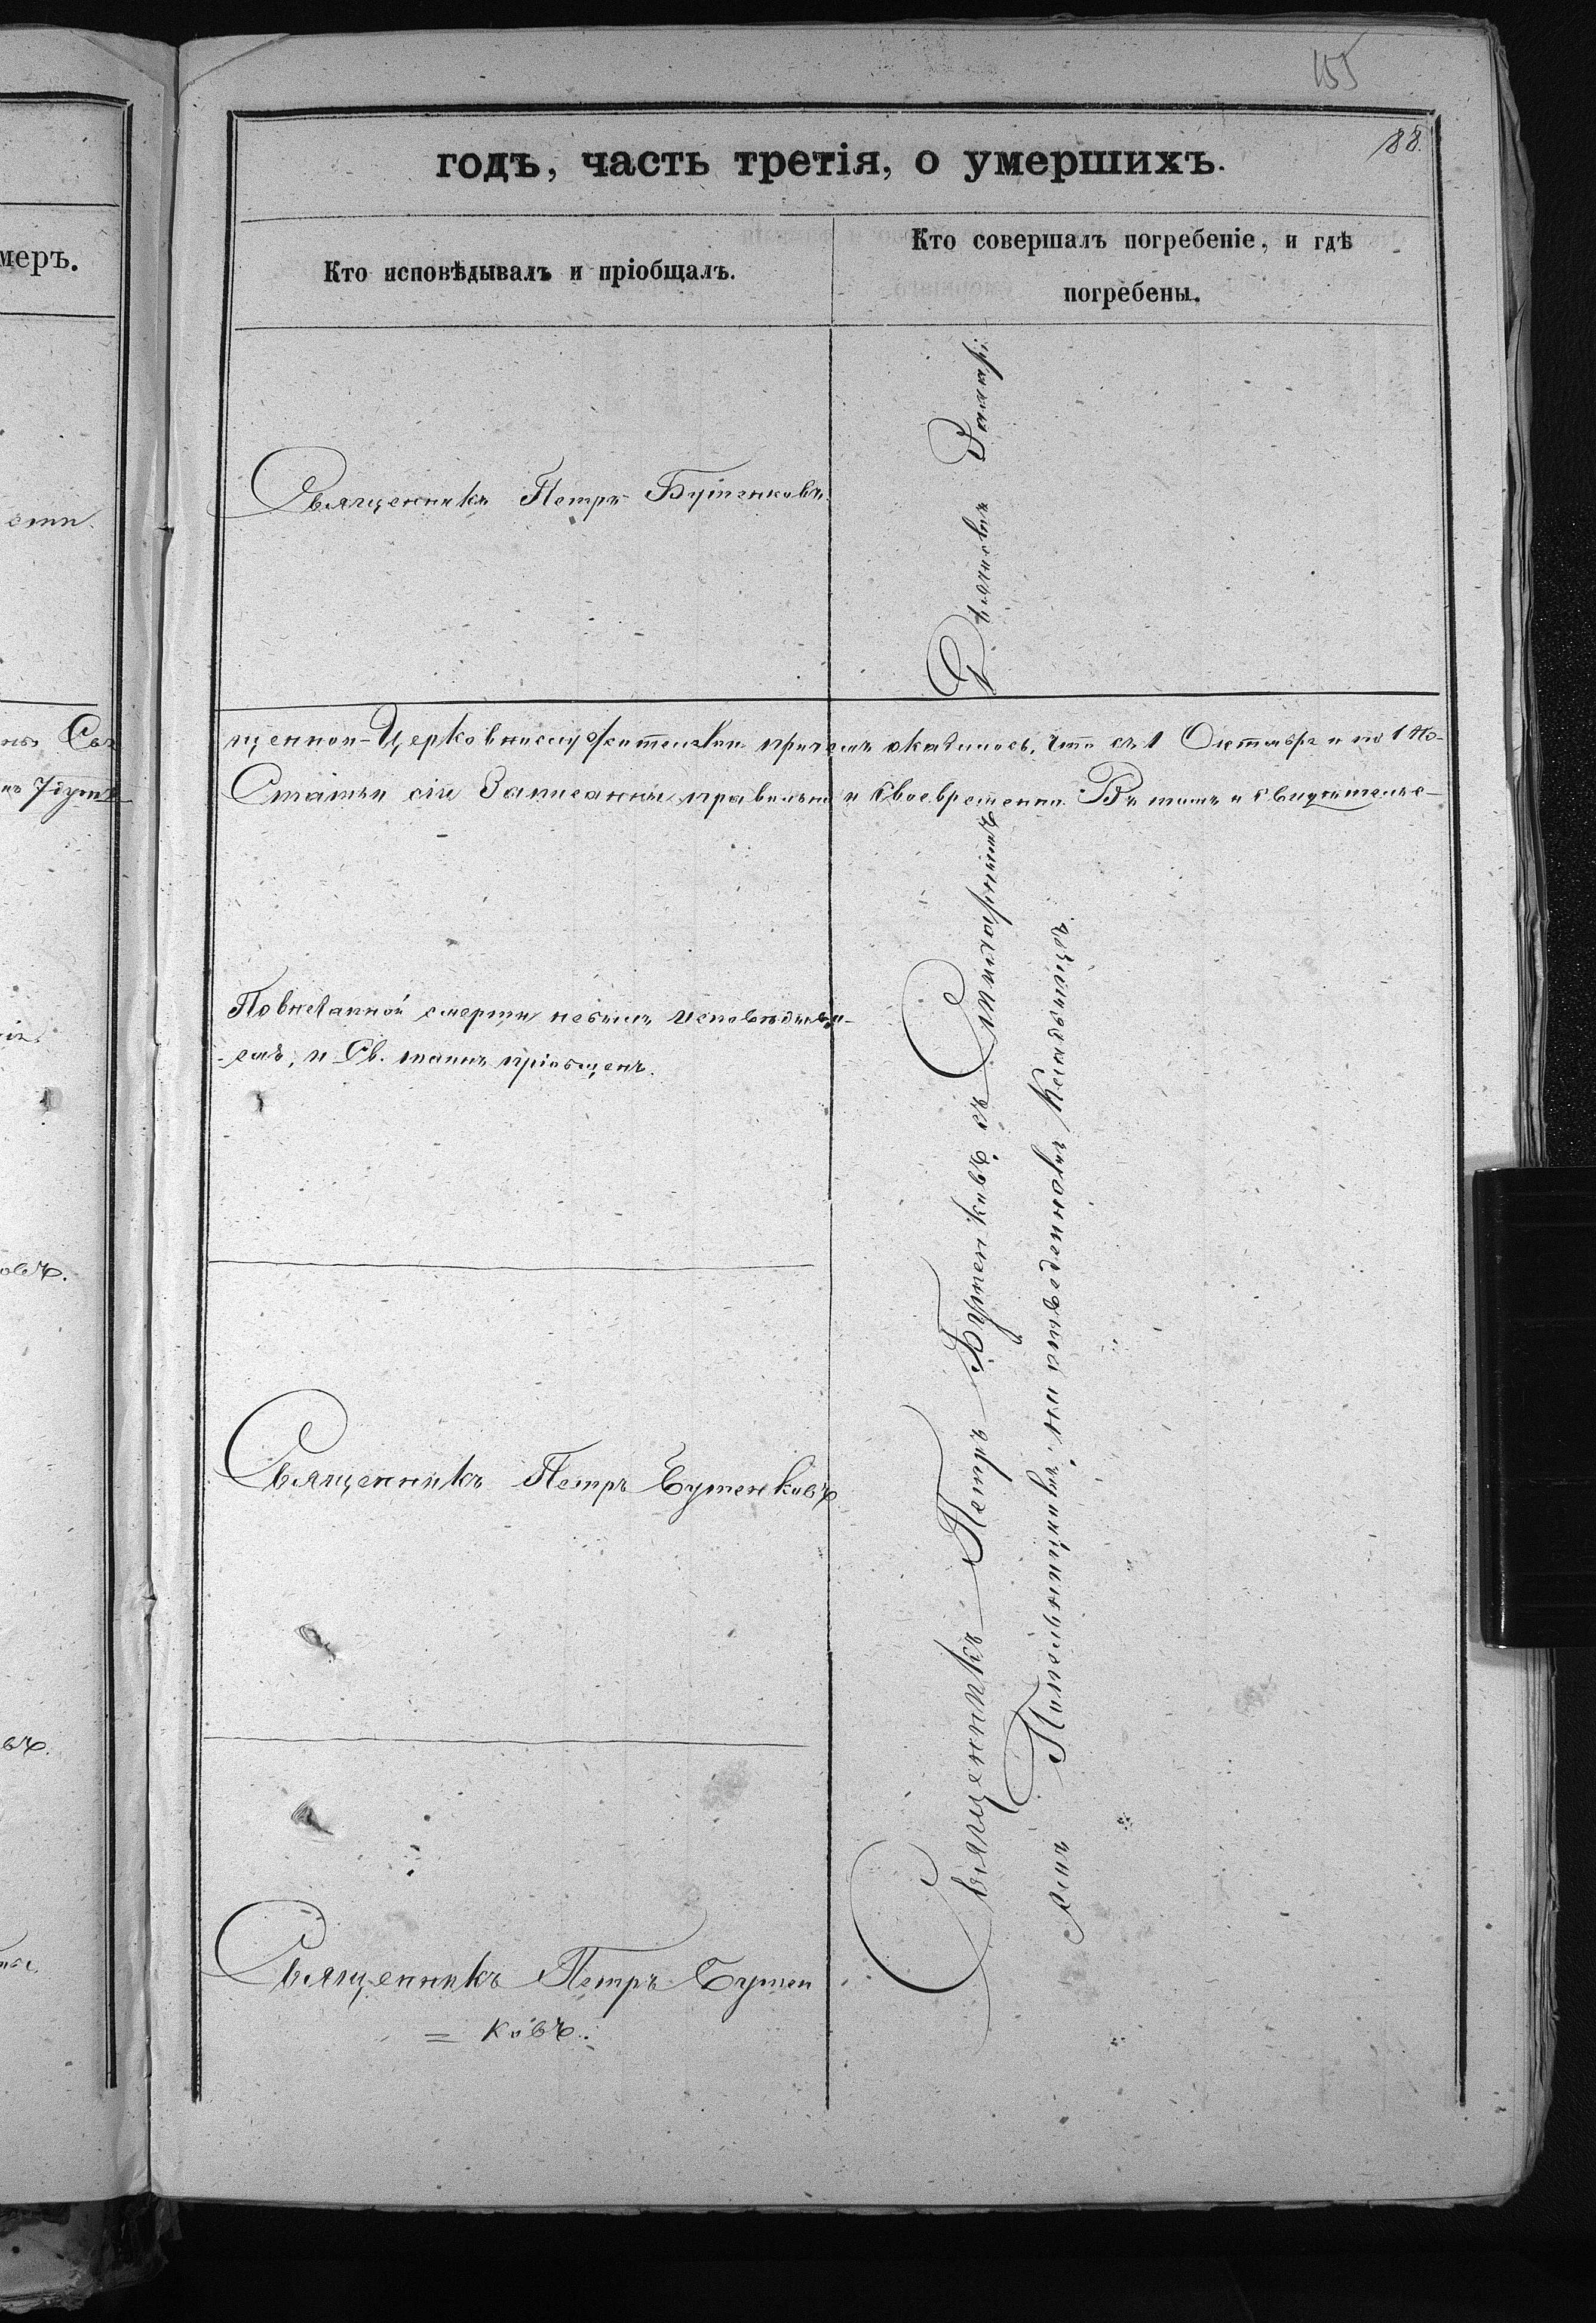 155
88.
годъ, часть третія, о умершихъ.
меръ.
Кто исповѣдывалъ и пріобщалъ.
Кто совершалъ погребеніе, и гдѣ
погребены.
Священникъ Петръ Бутенковъ.
щенно-Церковнослужителями причемъ оказалось, что съ 1 Октября и по 1 Но-
Статьи сіи Записанны правильно и своевременно. Въ томъ и свидѣтельс-
По внезапной смерти небылъ исповѣдыва-
емъ, и Св. таинъ пріобщенъ.
Священникъ Петръ Бутенковъ
Священникъ Петръ Бутен
= ковъ.
Священникъ Петръ Бутенковъ съ
на отведенномъ Кладбищѣ.